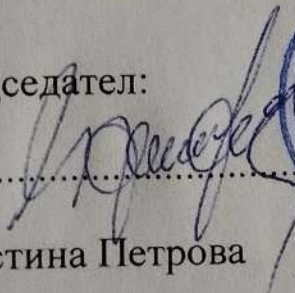 седател:
стина Петрова